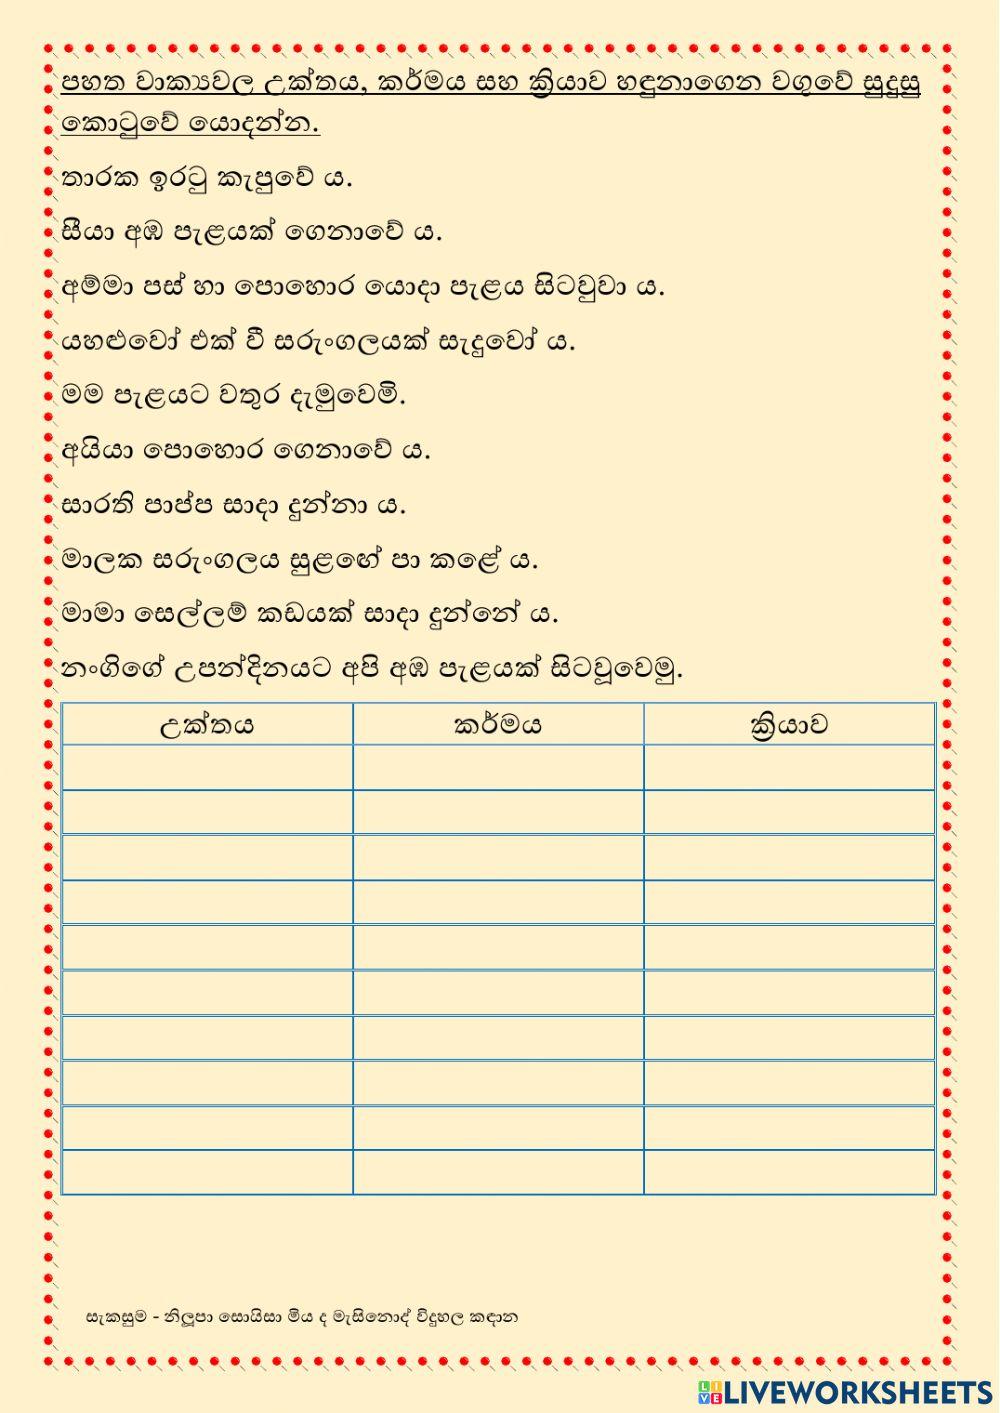 පහත වාක්‍යවල උක්තය, කර්මය සහ ක්‍රියාව හඳුනාගෙන වගුවේ සුදුසු
කොටුවේ යොදන්න.
තාරක ඉරටු කැපුවේ ය.
සීයා අඹ පැළයක් ගෙනාවේ ය.
අම්මා පස් හා පොහොර යොදා පැළය සිටවුවා ය.
යහළුවෝ එක් වී සරුංගලයක් සැදුවෝ ය.
මම පැළයට වතුර දැමුවෙමි.
අයියා පොහොර ගෙනාවේ ය.
සාරති පාප්ප සාදා දුන්නා ය.
මාලක සරුංගලය සුළඟේ පා කළේ ය.
මාමා සෙල්ලම් කඩයක් සාදා දුන්නේ ය.
නංගිගේ උපන්දිනයට අපි අඹ පැළයක් සිටවූවෙමු.
උක්තය කර්මය ක්‍රියාව
සැකසුම - නිලූපා සොයිසා මිය ද මැසිනොද් විදුහල කඳාන
LIVE LIVEWORKSHEETS